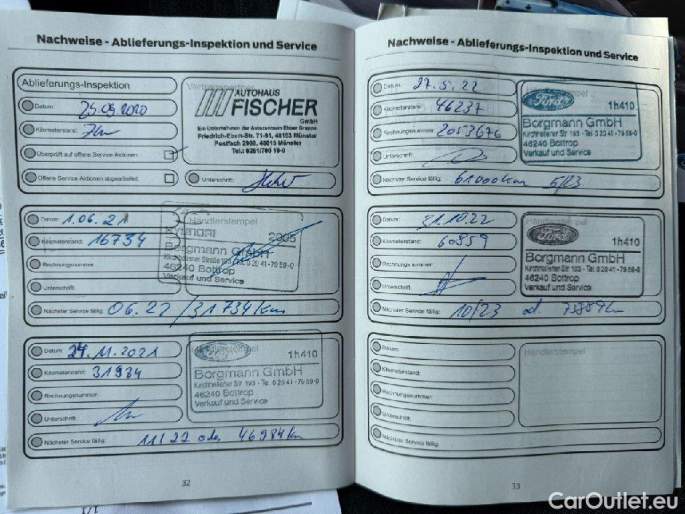 Nachweise - Ablieferungs-Inspektion und Service
Ablieferungs-Inspektion
Datum: 25.09.2020
Kilometerstand: 7km
Überprüft auf offene Service Aktionen
Offene Service Aktionen abgearbeitet
Unterschrift:
AUTOHAUS
FISCHER
GmbH
Ein Unternehmen der Autozentrum Ebner Gruppe
Friedrich-Ebert-Str. 71-91, 48153 Münster
Postfach 2980, 48015 Münster
Tel.: 0251/760 19-0
Datum: 1.06.21
Kilometerstand: 16734
Rechnungsnummer:
Unterschrift:
Nächster Service fällig: 06.22/31734km
Händlerstempel
HYUNDAI
Borgmann GmbH
46240 Bottrop
Verkauf und Service
Datum: 24.11.2021
Kilometerstand: 31984
Rechnungsnummer:
Unterschrift:
Nächster Service fällig: 11/22 oder 46984km
1h410
Borgmann GmbH
Kirchhellener Str 193 - Tel. 0 20 41 - 79 59-0
46240 Bottrop
Verkauf und Service
32
Nachweise - Ablieferungs-Inspektion und Service
Datum: 27.5.22
Kilometerstand: 46237
Rechnungsnummer: 2053676
Unterschrift:
Nächster Service fällig: 61000km 5/23
Ford
1h410
Borgmann GmbH
Kirchhellener Str 193 - Tel. 0 20 41 - 79 59-0
46240 Bottrop
Verkauf und Service
Datum: 31.10.22
Kilometerstand: 60959
Rechnungsnummer:
Unterschrift:
Nächster Service fällig: 10/23 od.
Ford
1h410
Borgmann GmbH
Kirchhellener Str 193 - Tel. 0 20 41 - 79 59-0
46240 Bottrop
Verkauf und Service
Datum:
Kilometerstand:
Rechnungsnummer:
Unterschrift:
Nächster Service fällig:
Händlerstempel
33
CarOutlet.eu